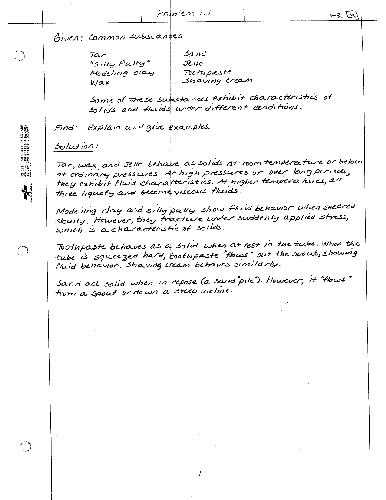 Problem 1.1
Given: Common Substances
Tar Sand
"Silly Putty" Jello
Modeling clay Toothpaste
Wax Shaving cream
Some of these substances exhibit characteristics of
solids and fluids under different conditions.
Find: Explain and give examples.
Solution:
Tar, wax, and Jello behave as solids at room temperature or below
at ordinary pressures. At high pressures or over long periods,
they exhibit fluid characteristics. At higher temperatures, all
three liquefy and become viscous fluids.
Modeling clay and silly putty show fluid behavior when sheared
slowly. However, they fracture under suddenly applied stress,
which is a characteristic of solids.
Toothpaste behaves as a solid when at rest in the tube. When the
tube is squeezed hard, toothpaste "flows" out the spout, showing
fluid behavior. Shaving cream behaves similarly.
Sand acts solid when in repose (a sand "pile"). However, it "flows"
from a spout or down a steep incline.